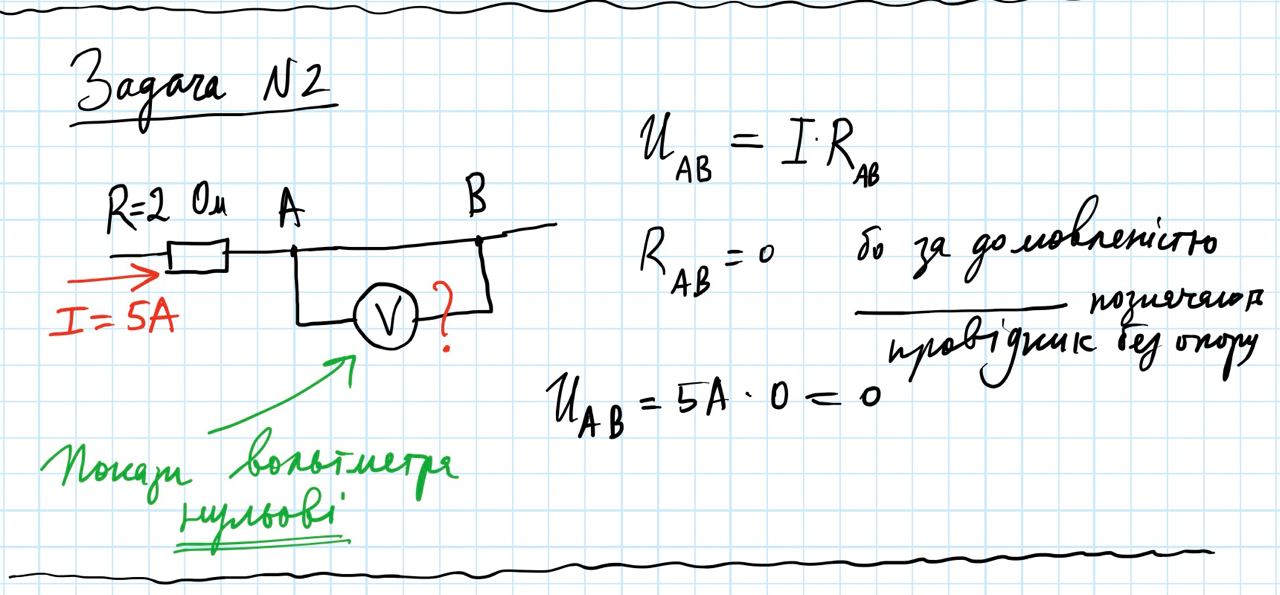 Задача N2
R=2 Ом A B
I = 5A
V ?
Покази вольтметра
нульові
U_AB = I·R_AB
R_AB = 0 бо за домовленістю
_____ позначають
провідник без опору
U_AB = 5A · 0 = 0